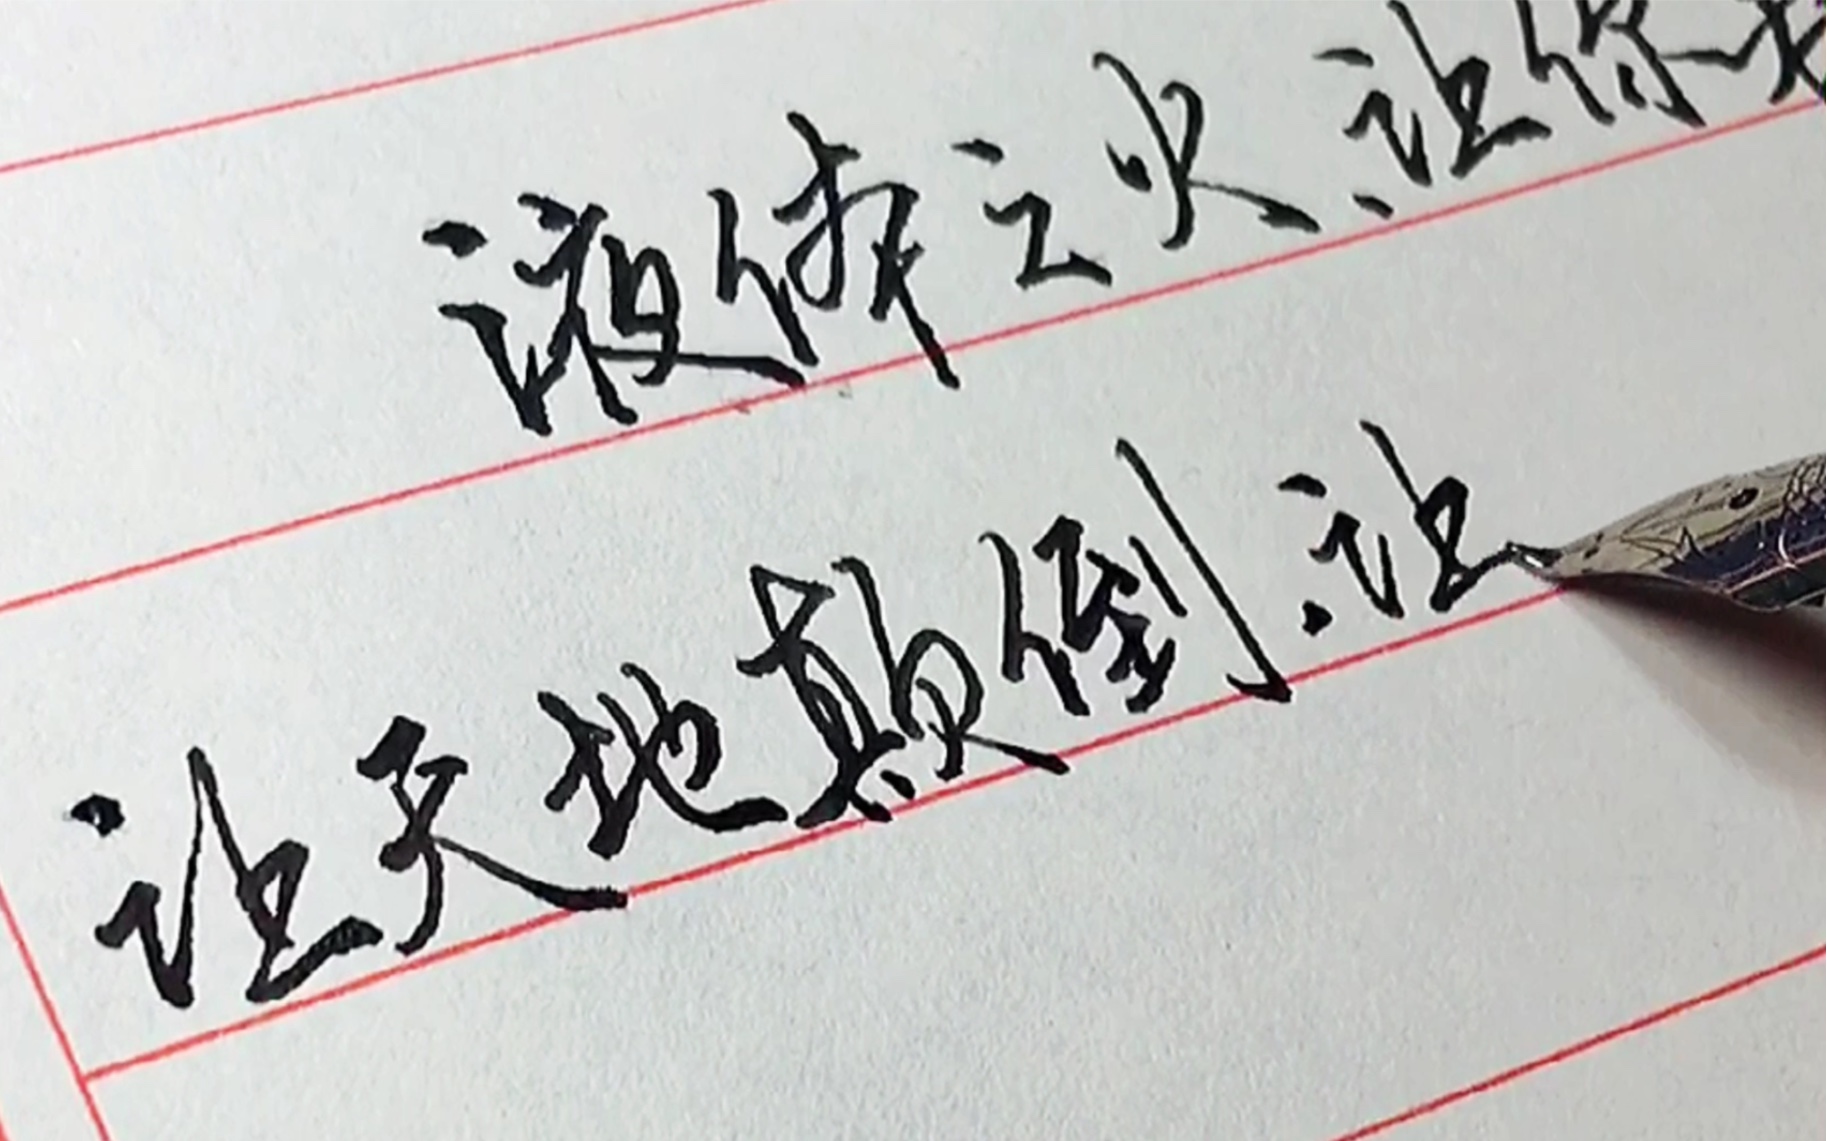 液体之火,让你我
让天地颠倒,让